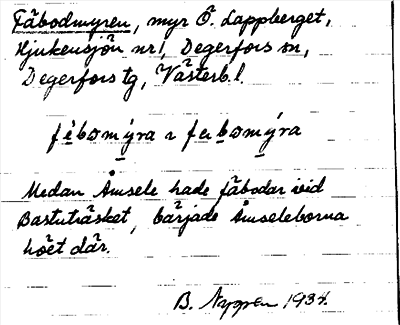 Fäbodmyren, myr Ö. Lappberget,
Hjukensjön nr 1, Degerfors sn,
Degerfors tg, Västerb. l.
fèbomýra ɿ febomýra
Medan Åmsele hade fäbodar vid
Bastuträsket, bärjade Åmseleborna
höet där.
B. Nygren 1934.